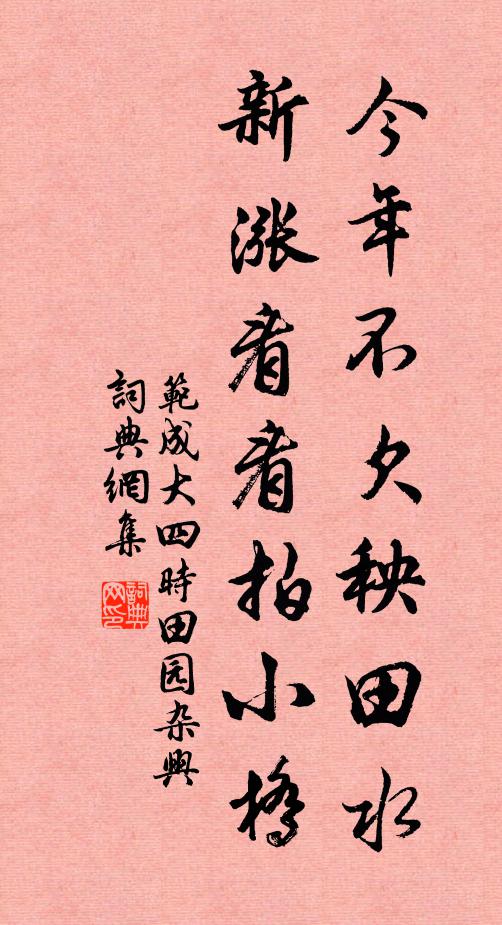 今年不欠秧田水
新漲看看拍小橋
範成大四時田园杂興
詞典網集
詞典网印